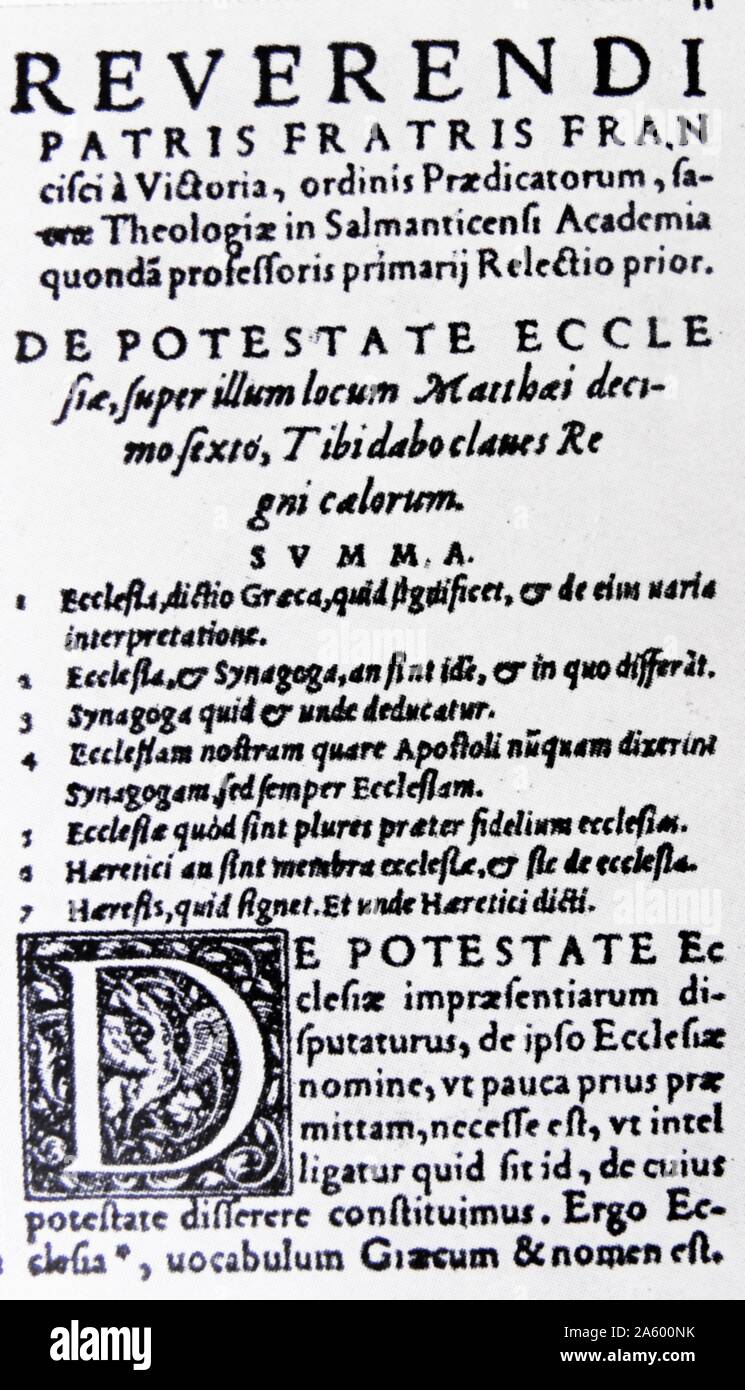 REVERENDI
PATRIS FRATRIS FRAN
ciſci à Victoria, ordinis Prædicatorum, ſa-
cræ Theologiæ in Salmanticenſi Academia
quondã profeſſoris primarij Relectio prior.
DE POTESTATE ECCLE
ſiæ, ſuper illum locum Matthæi deci-
mo ſexto, Tibi dabo claues Re
gni cælorum.
SVMMA.
1 Eccleſia, dictio Græca, quid ſignificet, & de eius uaria
interpretatione.
2 Eccleſia, & Synagoga, an ſint idẽ, & in quo differãt.
3 Synagoga quid & unde deducatur.
4 Eccleſiam noſtram quare Apoſtoli nũquam dixerint
Synagogam, ſed ſemper Eccleſiam.
5 Eccleſiæ quòd ſint plures præter fidelium eccleſias.
6 Hæretici an ſint membra eccleſiæ, & ſic de eccleſia.
7 Hæreſis, quid ſignet. Et unde Hæretici dicti.
DE POTESTATE Ec
cleſiæ impræſentiarum di-
ſputaturus, de ipſo Eccleſiæ
nomine, vt pauca prius præ
mittam, neceſſe eſt, vt intel
ligatur quid ſit id, de cuius
poteſtate diſſerere conſtituimus. Ergo Ec-
cleſia*, uocabulum Græcum & nomen eſt.
alamy
Image ID: 2A600NK
www.alamy.com